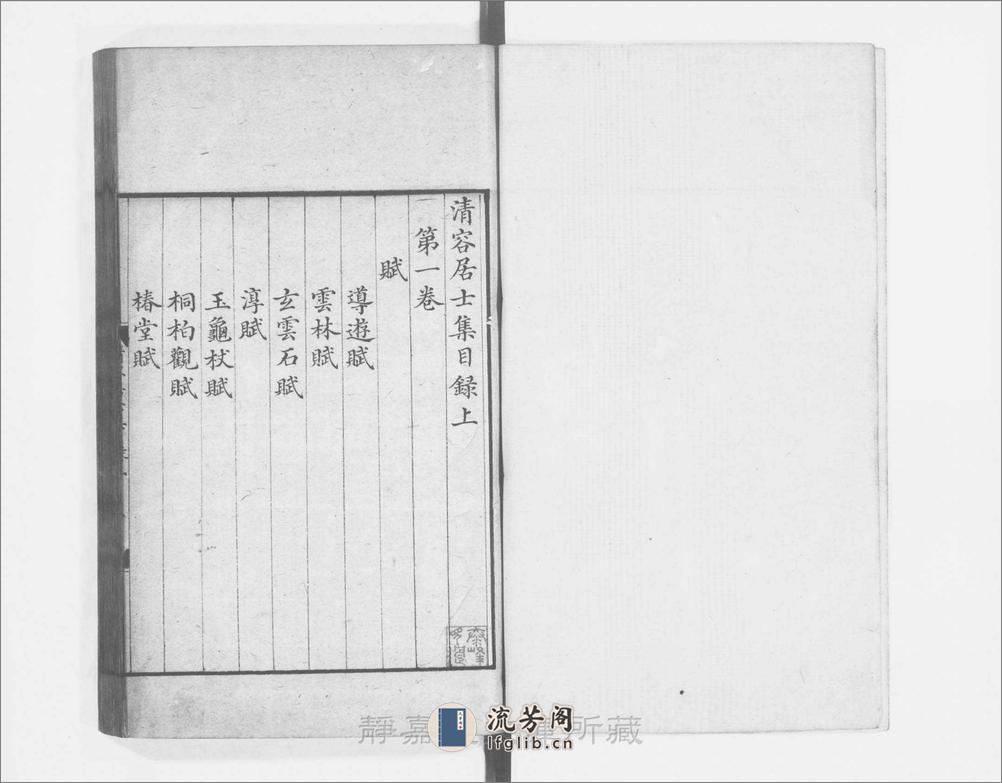 清容居士集目録上
第一卷
賦
導遊賦
雲林賦
玄雲石賦
淳賦
玉龜杖賦
桐柏觀賦
椿堂賦
靜嘉
所藏
流芳阁
lfglib.cn